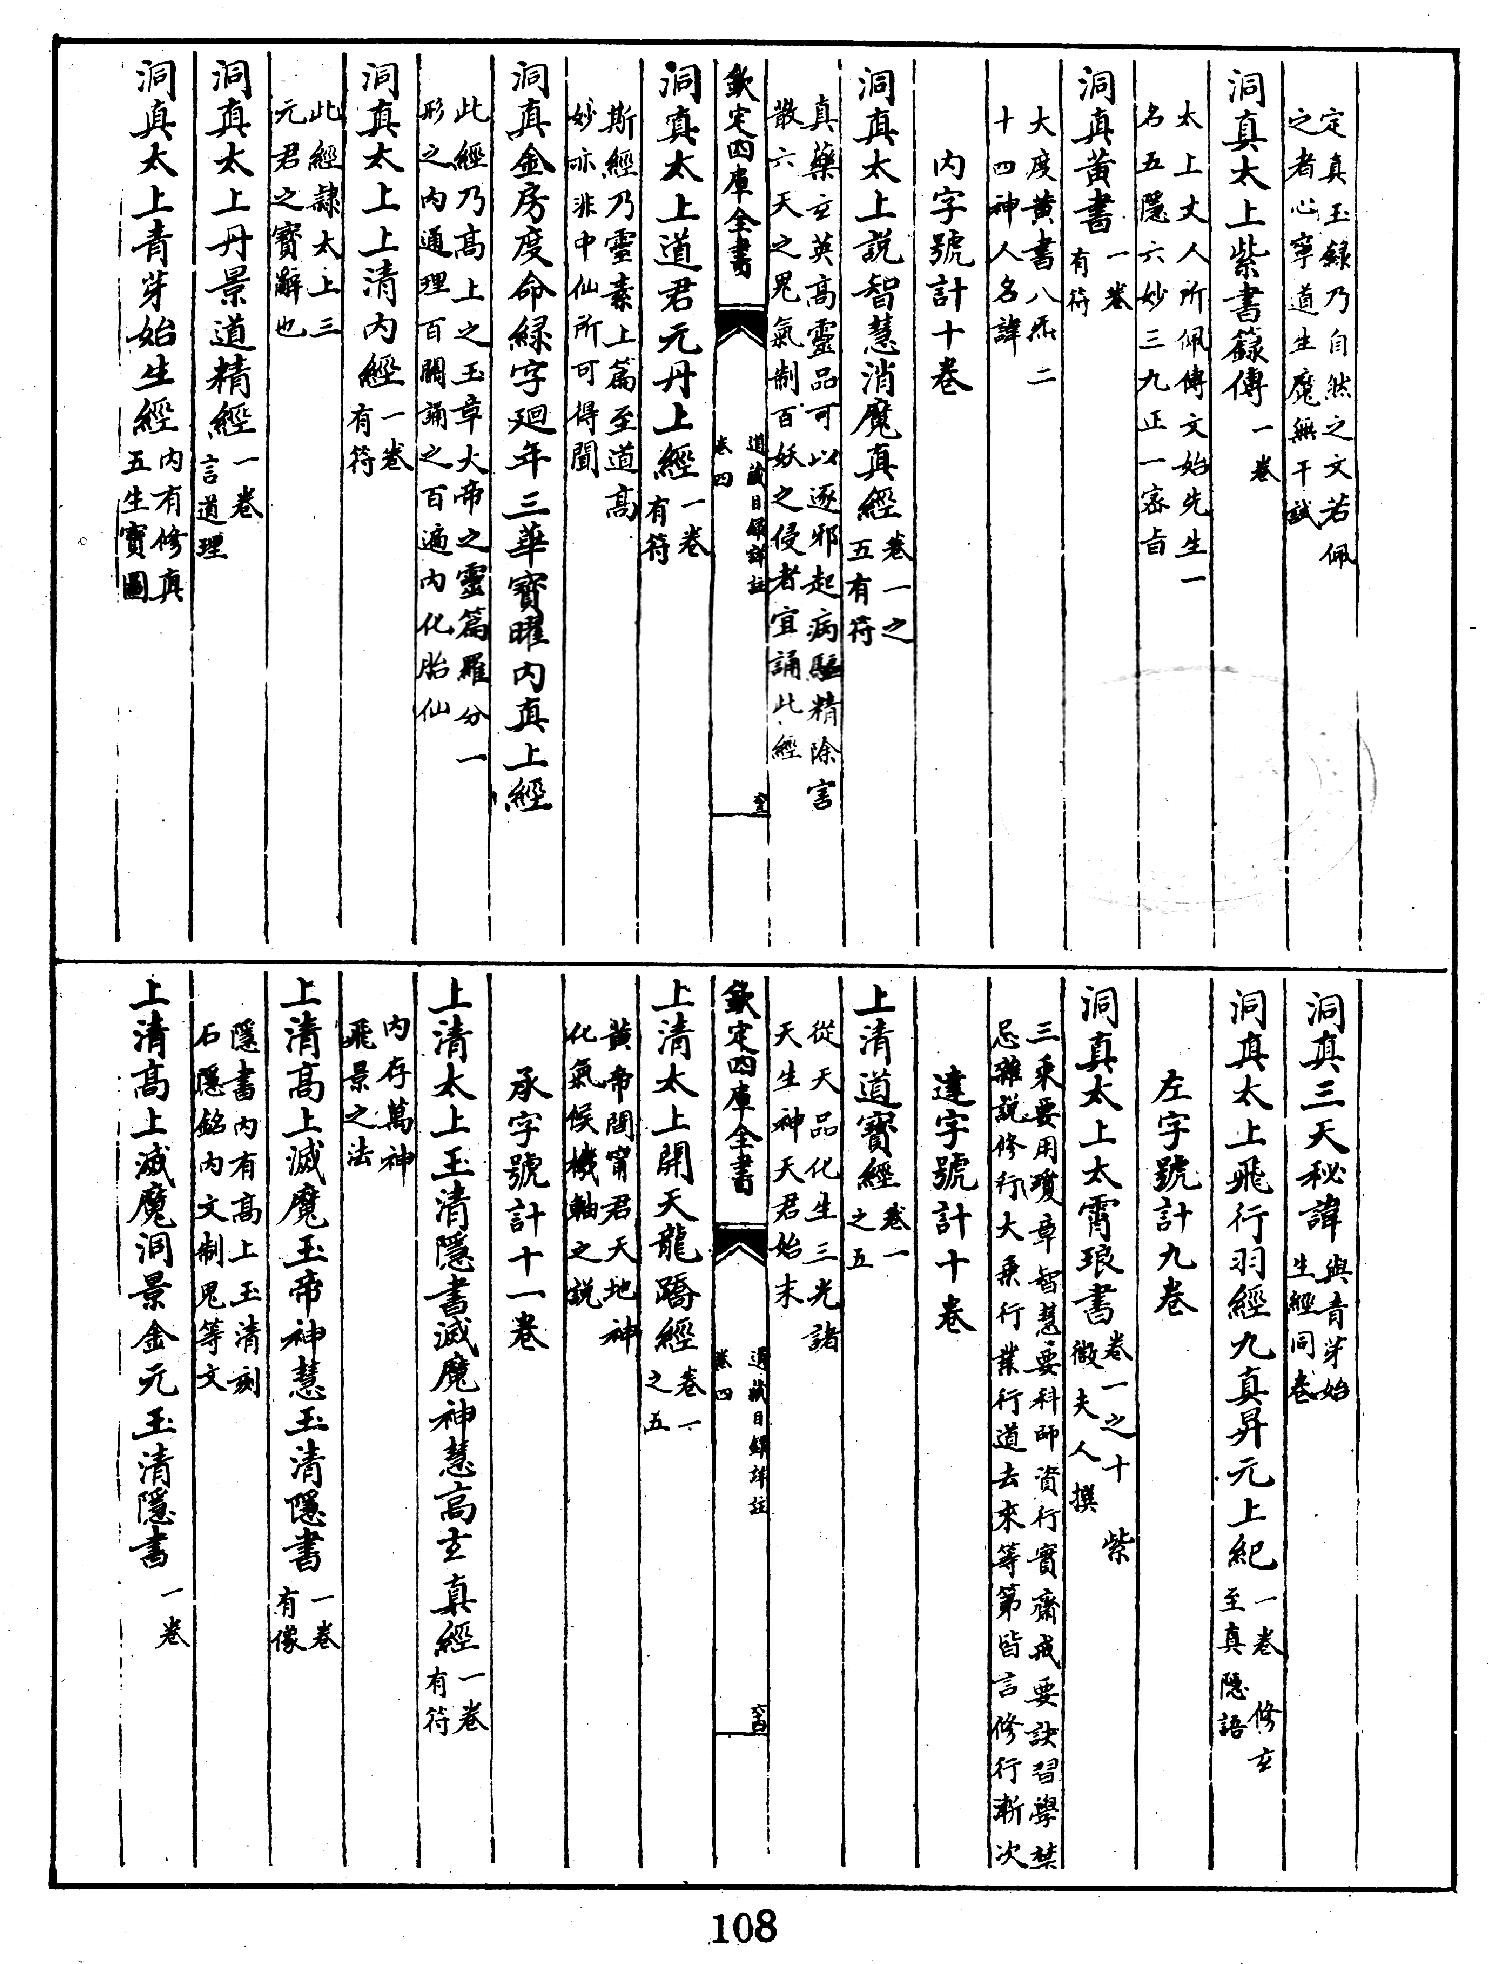 定真玉録乃自然之文若佩
之者心寧道生魔無干試
洞真太上紫書籙傳一卷
太上丈人所佩傳文始先生一
名五隱六妙三九正一宻㫖
洞真黄書一卷
有符
大度黄書八炁二
十四神人名諱
内字號計十卷
洞真太上説智慧消魔真經卷一之
五有符
真藥玄英高靈品可以逐邪起病驅精除害
散六天之鬼氣制百妖之侵者宜誦此經
欽定四庫全書
道藏目録詳註
卷四
洞真太上道君元丹上經一卷
有符
斯經乃靈素上篇至道高
妙亦非中仙所可得聞
洞真金房度命緑字迴年三華寶曜内真上經
此經乃高上之玉章大帝之靈篇羅分一
形之内通理百關誦之百遍内化胎仙
洞真太上上清内經一卷
有符
此經隷太上三
元君之寶辭也
洞真太上丹景道精經一卷
言道理
洞真太上青芽始生經内有修真
五生寶圖
洞真三天秘諱與青芽始
生經同卷
洞真太上飛行羽經九真昇元上紀一卷 修玄
至真隱語
左字號計九卷
洞真太上太霄琅書卷一之十 紫
微夫人撰
三乘要用瓊章智慧要科師資行實齋戒要訣習學禁
忌雜説修行大乘行業行道去來等第皆言修行漸次
達字號計十卷
上清道寶經卷一
之五
從天品化生三光諸
天生神天君始末
欽定四庫全書
道藏目録詳註
卷四
上清太上開天龍蹻經卷一
之五
黄帝問甯君天地神
化氣候機軸之説
承字號計十一卷
上清太上玉清隱書滅魔神慧高玄真經一卷
有符
内存萬神
飛景之法
上清高上滅魔玉帝神慧玉清隱書一卷
有像
隱書内有高上玉清刻
石隱銘内文制鬼等文
上清高上滅魔洞景金元玉清隱書一卷
108